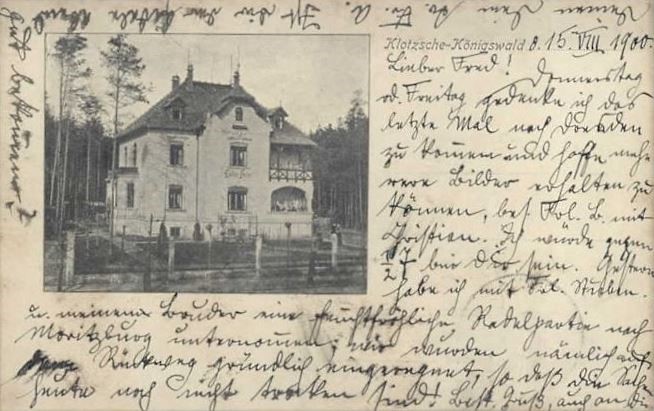 Klotzsche-Königswald d. 15. VIII 1900.
Lieber Fred! Donnerstag
od. Freitag gedenke ich das
letzte Mal nach Dresden
zu kommen und hoffe meh-
rere Bilder erhalten zu
können, bes. Frl. B. mit
Christien. Ich würde gegen
1/2 7 bei Dir sein. Gestern
habe ich mit Frl. Stüben.
u. meinem Bruder eine feuchtfröhliche Radelpartie nach
Moritzburg unternommen; wir wurden nämlich auf
dem Rückweg gründlich eingeregnet, so daß die
heute noch nicht trocken sind! Best. Gruß, auch an die
Ist Dir das
gut bekommen?